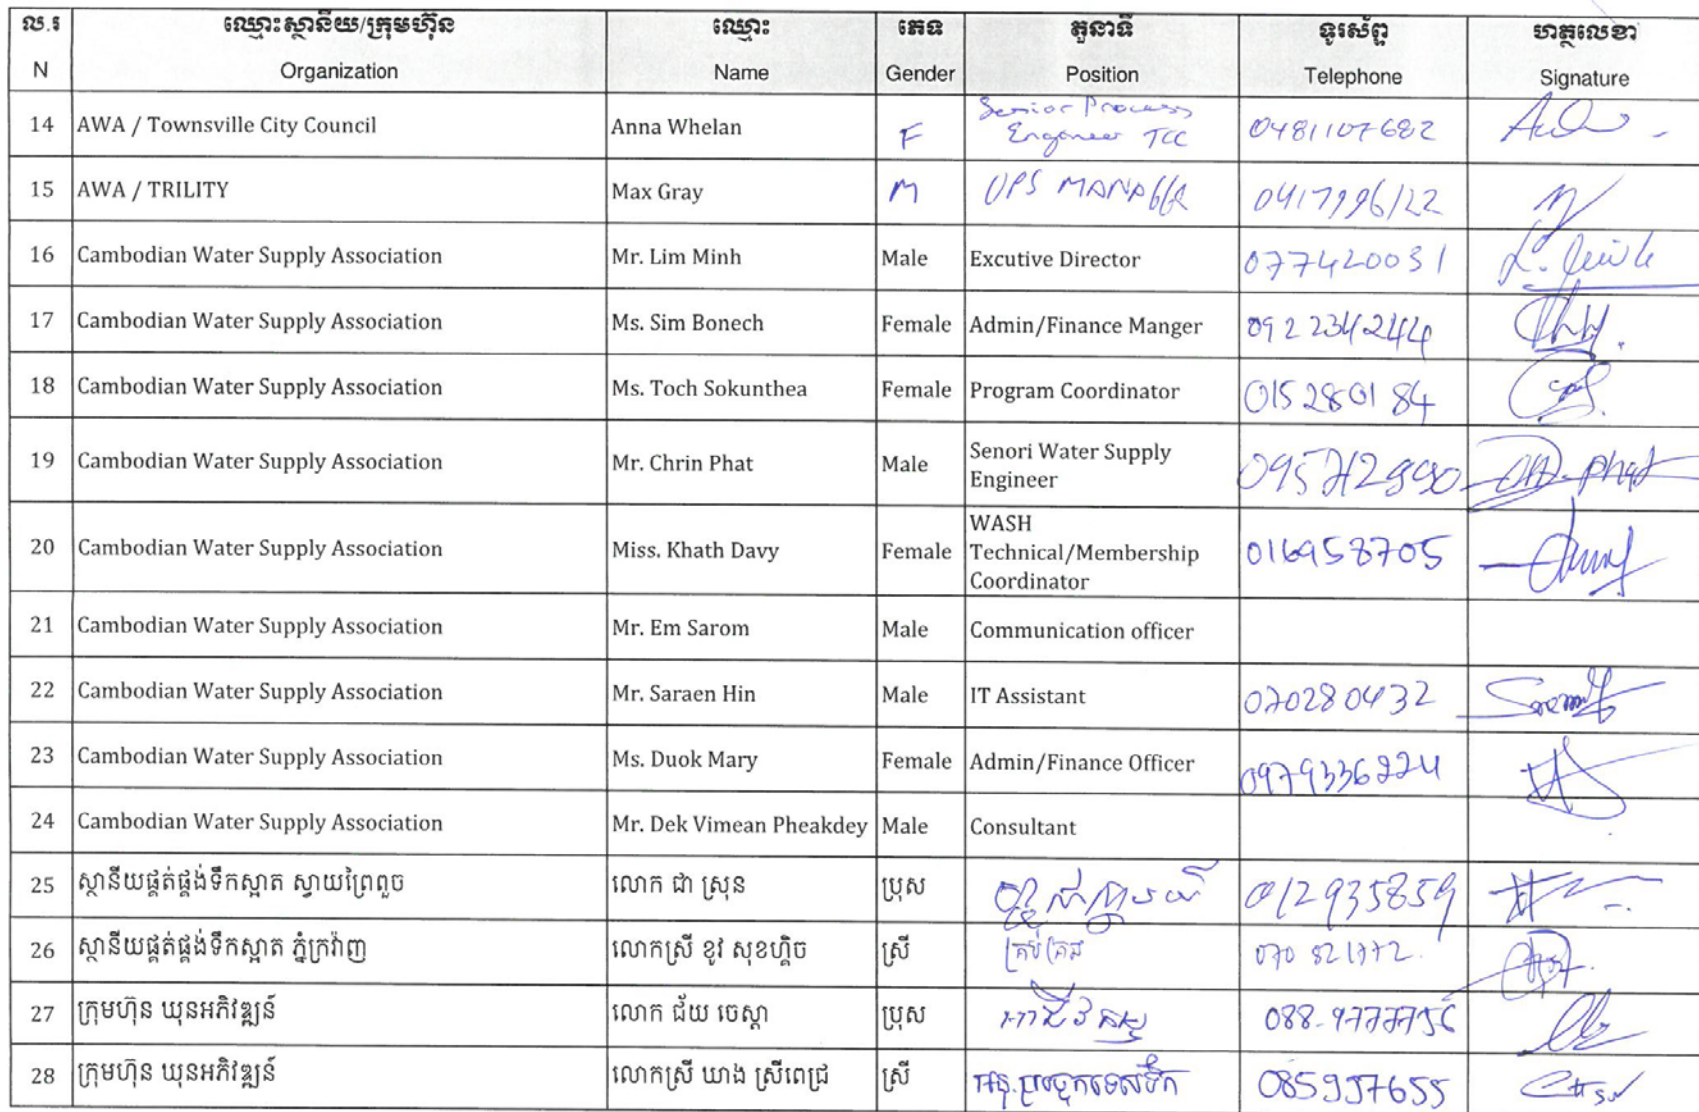 ល.រ ឈ្មោះស្ថានីយ/ក្រុមហ៊ុន ឈ្មោះ ភេទ តួនាទី ទូរស័ព្ទ ហត្ថលេខា
N Organization Name Gender Position Telephone Signature
14 AWA / Townsville City Council Anna Whelan F Senior Process Engineer TCC 0481107682
15 AWA / TRILITY Max Gray M OPS MANAGER 0417996122
16 Cambodian Water Supply Association Mr. Lim Minh Male Excutive Director 077420031
17 Cambodian Water Supply Association Ms. Sim Bonech Female Admin/Finance Manger 092234244
18 Cambodian Water Supply Association Ms. Toch Sokunthea Female Program Coordinator 015280184
19 Cambodian Water Supply Association Mr. Chrin Phat Male Senori Water Supply
Engineer
20 Cambodian Water Supply Association Miss. Khath Davy Female WASH
Technical/Membership
Coordinator 016958705
21 Cambodian Water Supply Association Mr. Em Sarom Male Communication officer
22 Cambodian Water Supply Association Mr. Saraen Hin Male IT Assistant 070280432
23 Cambodian Water Supply Association Ms. Duok Mary Female Admin/Finance Officer 0979336224
24 Cambodian Water Supply Association Mr. Dek Vimean Pheakdey Male Consultant
25 ស្ថានីយផ្គត់ផ្គង់ទឹកស្អាត ស្វាយព្រៃពួច លោក ជា ស្រុន ប្រុស 012935859
26 ស្ថានីយផ្គត់ផ្គង់ទឹកស្អាត ភ្នំក្រវ៉ាញ លោកស្រី ខូវ សុខហ្គិច ស្រី គ្រប់គ្រង
27 ក្រុមហ៊ុន ឃុនអភិវឌ្ឍន៍ លោក ជ័យ ចេស្តា ប្រុស 088-9777756
28 ក្រុមហ៊ុន ឃុនអភិវឌ្ឍន៍ លោកស្រី ឃាង ស្រីពេជ្រ ស្រី 085957655